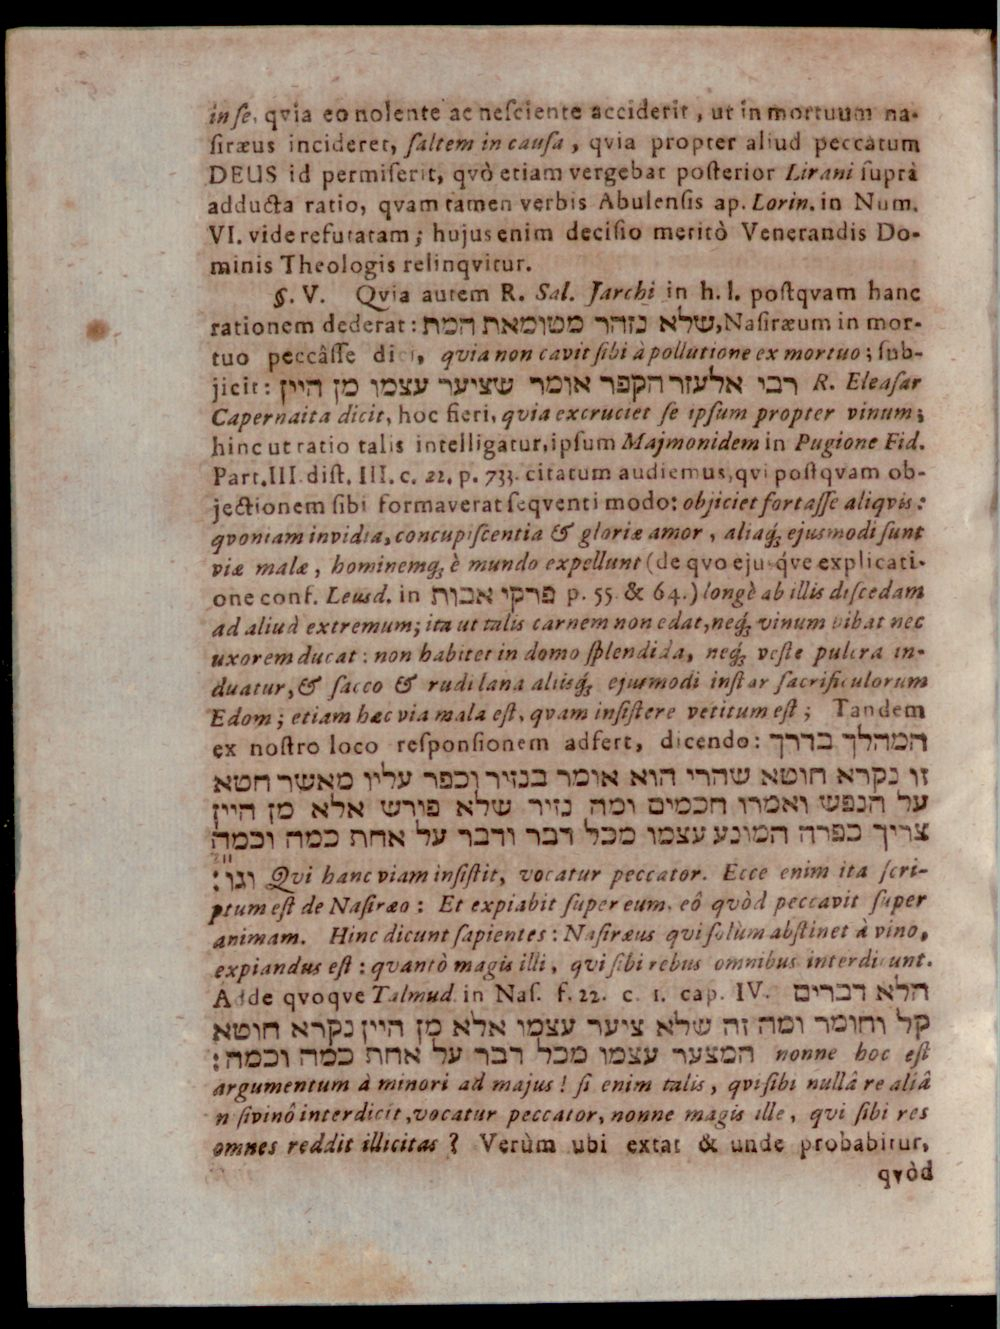 in ſe, qvia eo nolente ac neſciente acciderit, ut in mortuum na-
ſiræus incideret, ſaltem in cauſa, qvia propter aliud peccatum
DEUS id permiſerit, qvò etiam vergebat poſterior Lirani ſuprà
adducta ratio, qvam tamen verbis Abulenſis ap. Lorin. in Num.
VI. vide refutatam; hujus enim deciſio meritò Venerandis Do-
minis Theologis relinqvitur.
§. V. Qvia autem R. Sal. Jarchi in h. l. poſtqvam hanc
rationem dederat: שלא נזהר מטומאת המת, Naſiræum in mor-
tuo peccâſſe dici, quia non cavit ſibi à pollutione ex mortuo; ſub-
jicit: רבי אלעזר הקפר אומר שציער עצמו מן היין R. Eleaſar
Capernaita dicit, hoc fieri, quia excruciet ſe ipſum propter vinum;
hinc ut ratio talis intelligatur, ipſum Majmonidem in Pugione Fid.
Part. III. diſt. III. c. 22. p. 733. citatum audiemus, qvi poſtqvam ob-
jectionem ſibi formaverat ſeqventi modo: objiciet fortaſſe aliqvis:
qvoniam invidia, concupiſcentia & gloriæ amor, aliaq́; ejusmodi ſunt
viæ malæ, hominemq́; è mundo expellunt (de qvo ejusq́ve explicati-
one conf. Leusd. in פרקי אבות p. 55. & 64.) longè ab illis diſcedam
ad aliud extremum; ita ut talis carnem non edat, neq́; vinum bibat nec
uxorem ducat: non habitet in domo ſplendida, neq́; veſte pulcra in-
duatur, & ſacco & rudi lana aliisq́; ejusmodi inſtar ſacrificulorum
Edom; etiam hæc via mala eſt, qvam inſiſtere vetitum eſt; Tandem
ex noſtro loco reſponſionem adfert, dicendo: המהלך בדרך
זו נקרא חוטא שהרי הוא אומר בנזיר וכפר עליו מאשר חטא
על הנפש ואמרו חכמים ומה נזיר שלא פירש אלא מן היין
צריך כפרה המונע עצמו מכל דבר ודבר על אחת כמה וכמה
וגו׃ Qvi hanc viam inſiſtit, vocatur peccator. Ecce enim ita ſcri-
ptum eſt de Naſiræo: Et expiabit ſuper eum, eô quòd peccavit ſuper
animam. Hinc dicunt ſapientes: Naſiræus qui ſolùm abſtinet à vino,
expiandus eſt: quantò magis illi, qui ſibi rebus omnibus interdicunt.
Adde qvoqve Talmud in Naſ. f. 22. c. 1. cap. IV. הלא דברים
קל וחומר ומה זה שלא ציער עצמו אלא מן היין נקרא חוטא
המצער עצמו מכל דבר על אחת כמה וכמה: nonne hoc eſt
argumentum à minori ad majus! ſi enim talis, qvi ſibi nullâ re aliâ
niſi vinô interdicit, vocatur peccator, nonne magis ille, qvi ſibi res
omnes reddit illicitas? Verùm ubi extat & unde probabitur,
qvòd